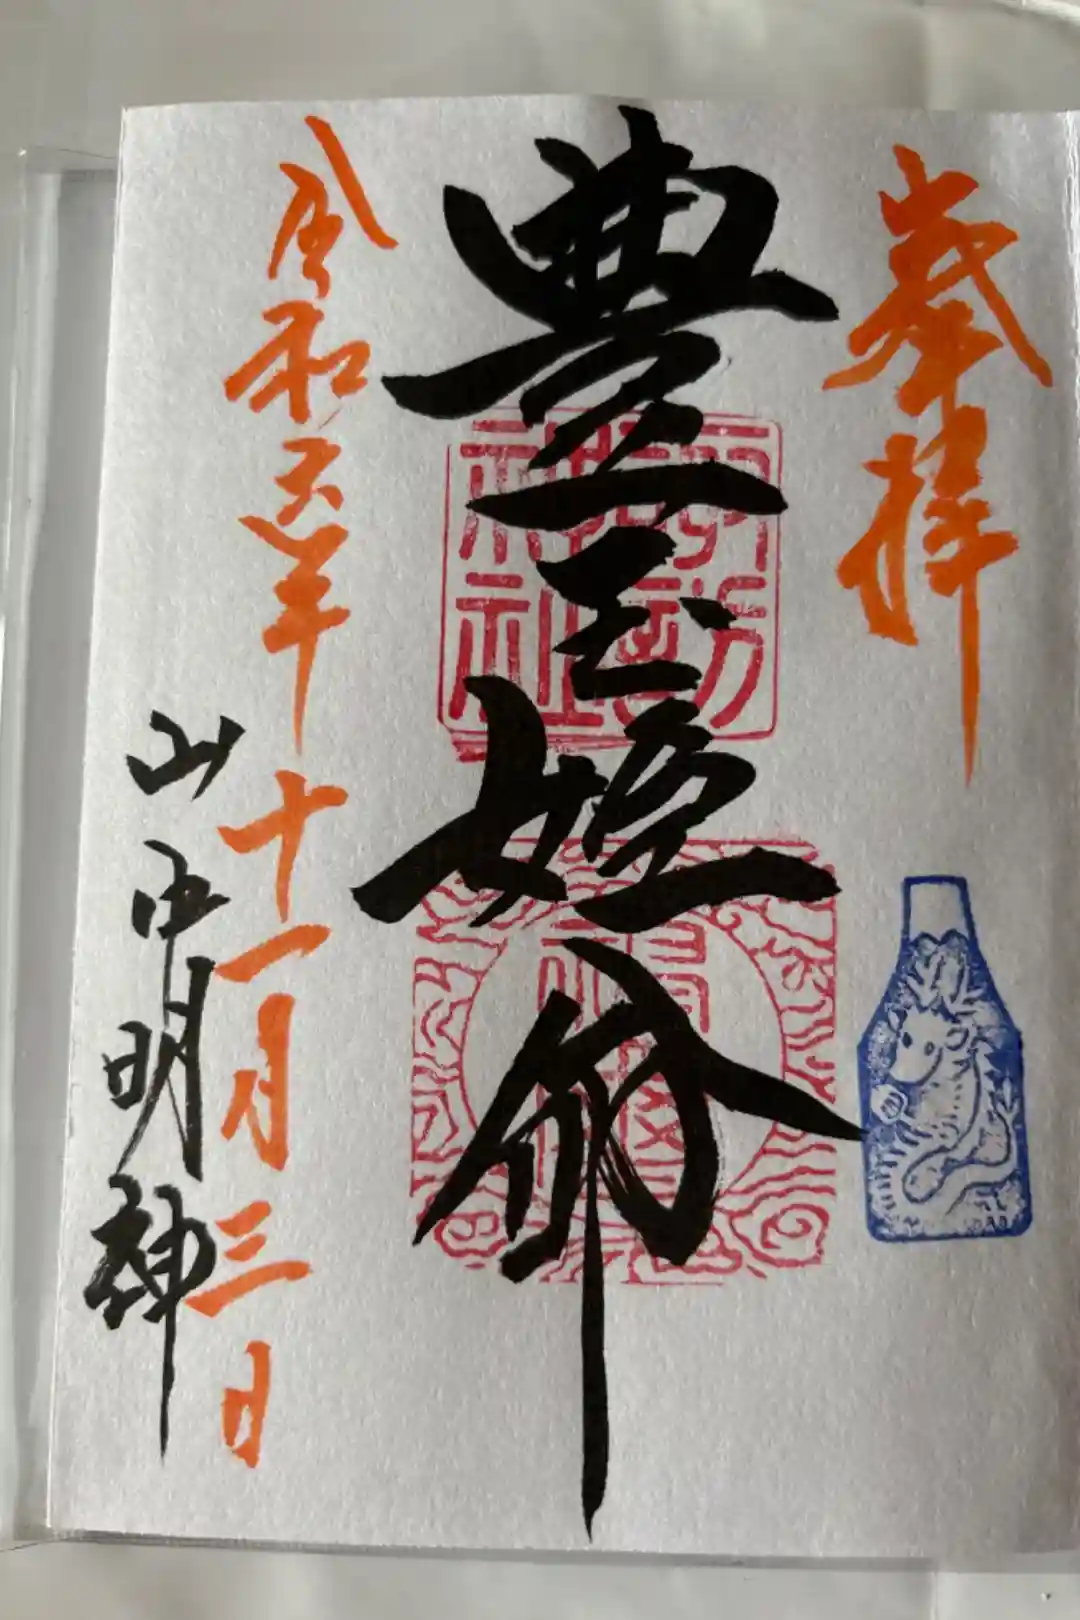 奉拝
豊玉姫命
諏訪
神社
令和六年十一月三日
山中明神